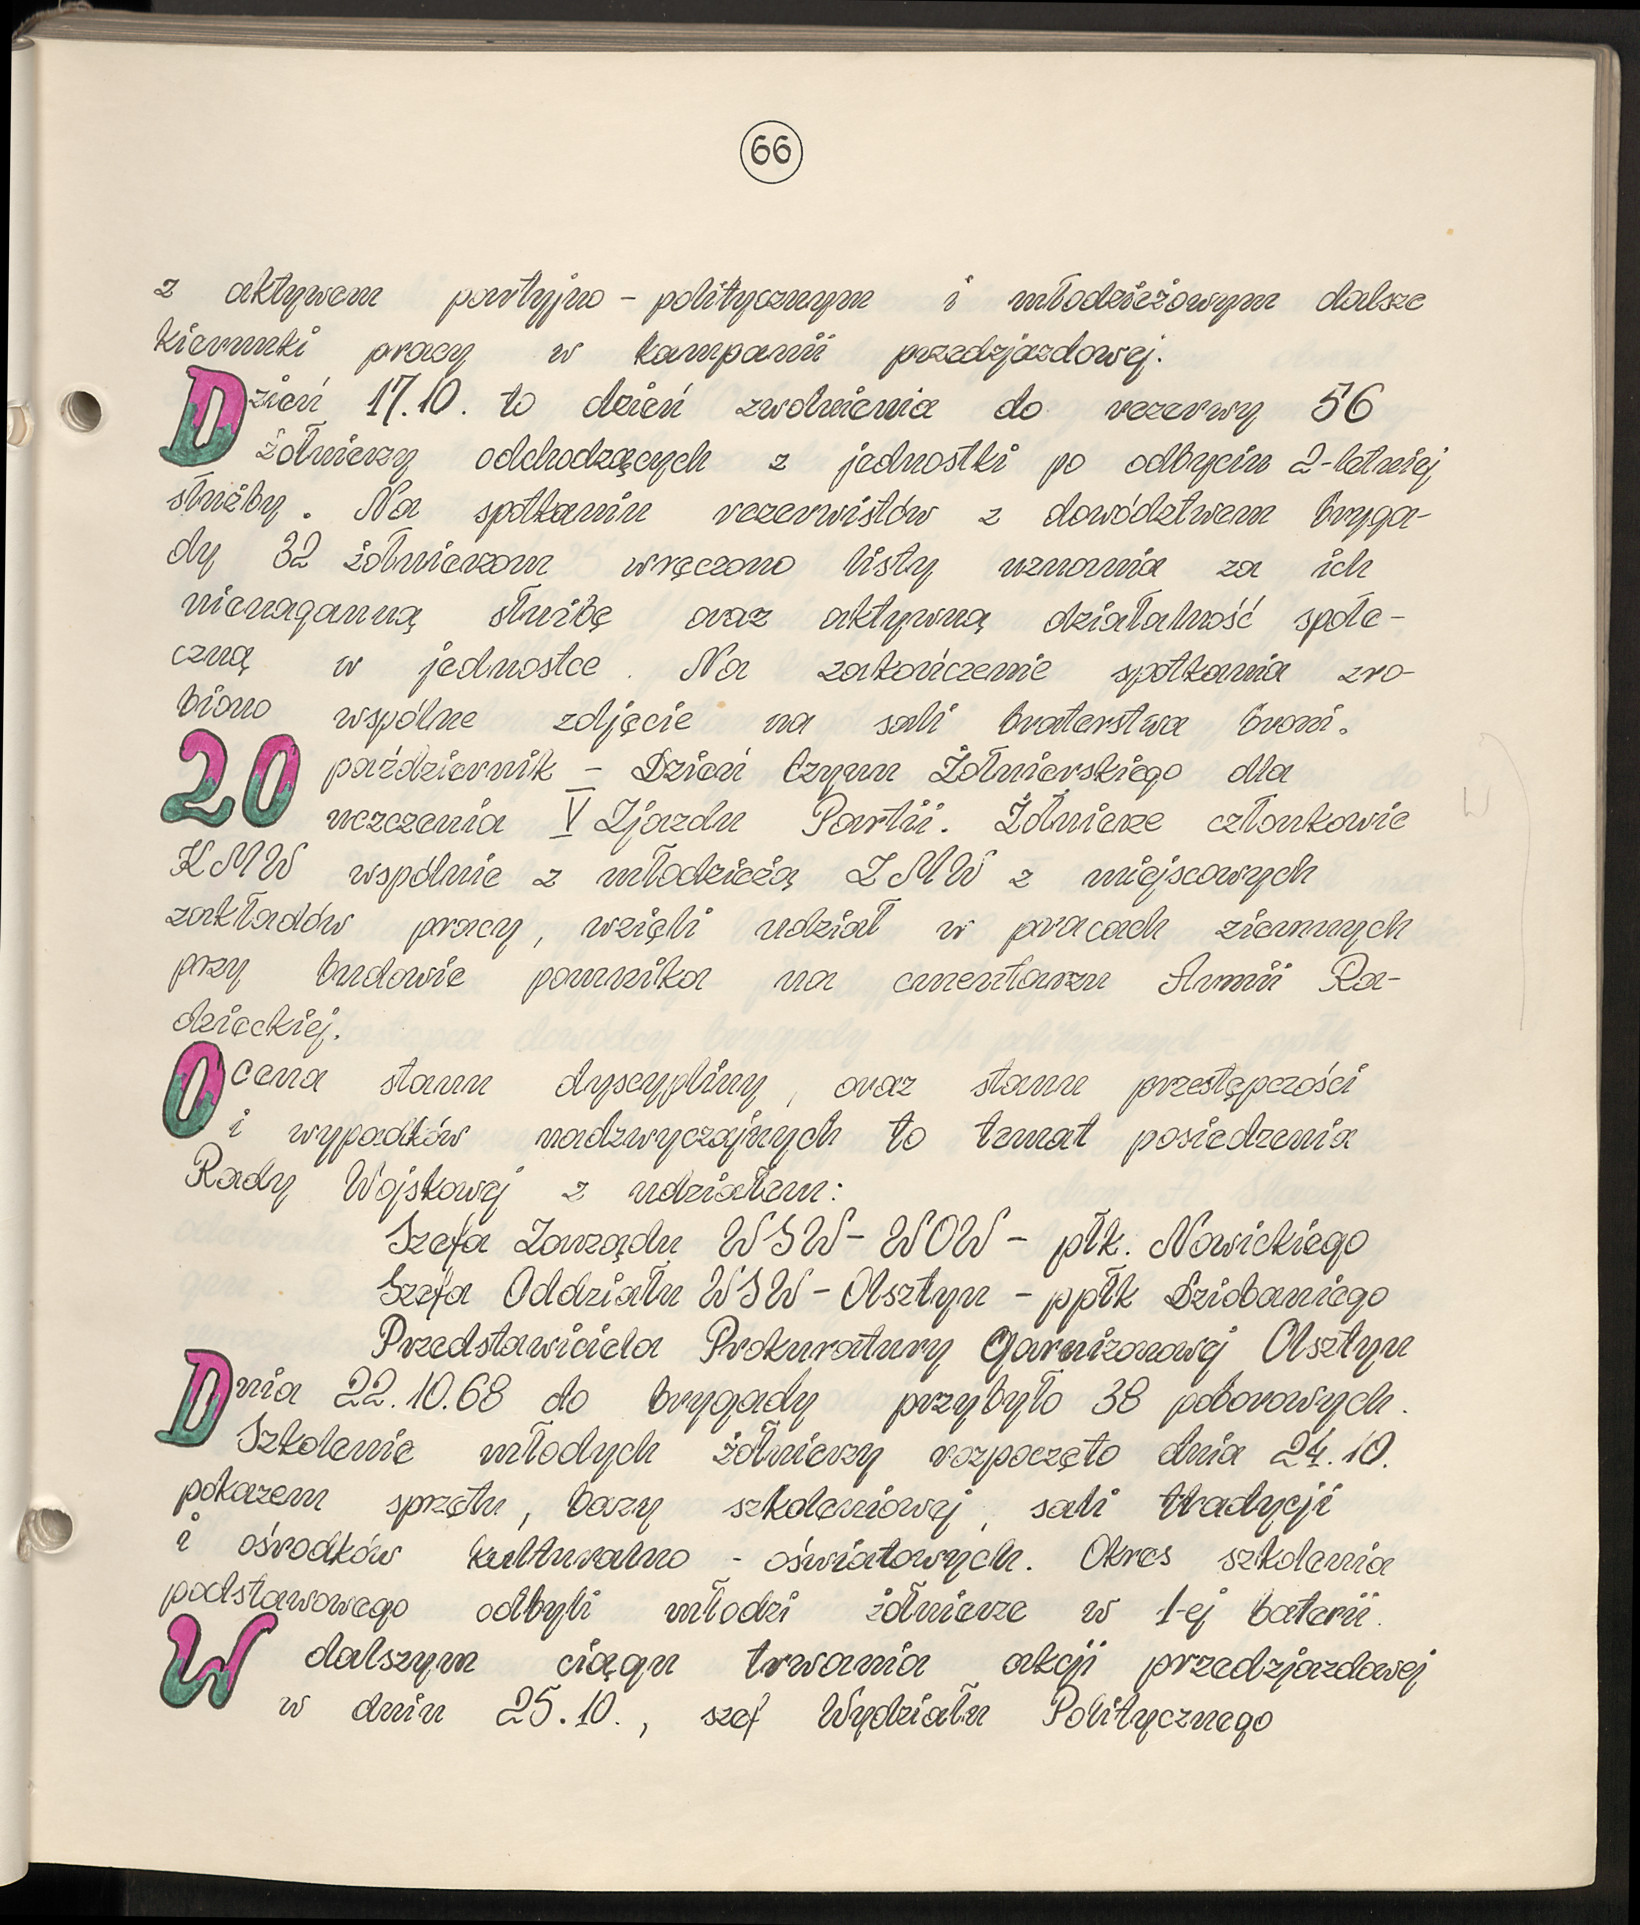 66
z aktywem partyjno - politycznym i młodzieżowym dalsze
kierunki pracy w kampanii przedzjazdowej.
Dzień 17.10. to dzień zwolnienia do rezerwy 56
żołnierzy odchodzących z jednostki po odbyciu 2-letniej
służby. Na spotkaniu rezerwistów z dowództwem bryga-
dy 32 żołnierzom wręczono listy uznania za ich
nienaganną służbę oraz aktywną działalność społe-
czną w jednostce. Na zakończenie spotkania zro-
biono wspólne zdjęcie na sali braterstwa broni.
20 październik - Dzień Czynu Żołnierskiego dla
uczczenia V Zjazdu Partii. Żołnierze członkowie
KMW wspólnie z młodzieżą ZMW z miejscowych
zakładów pracy, wzięli udział w pracach ziemnych
przy budowie pomnika na cmentarzu Armii Ra-
dzieckiej.
Ocena stanu dyscypliny, oraz stanu przestępczości
i wypadków nadzwyczajnych to temat posiedzenia
Rady Wojskowej z udziałem:
Szefa Zarządu WSW - WOW - płk. Nowickiego
Szefa Oddziału WSW - Olsztyn - ppłk Dziobaniego
Przedstawiciela Prokuratury Garnizonowej Olsztyn
Dnia 22.10.68 do brygady przybyło 38 poborowych.
Szkolenie młodych żołnierzy rozpoczęto dnia 24.10.
pokazem sprzętu, bazy szkoleniowej, sali tradycji
i ośrodków kulturalno - oświatowych. Okres szkolenia
podstawowego odbyli młodzi żołnierze w 1-ej baterii.
W dalszym ciągu trwania akcji przedzjazdowej
w dniu 25.10., szef Wydziału Politycznego